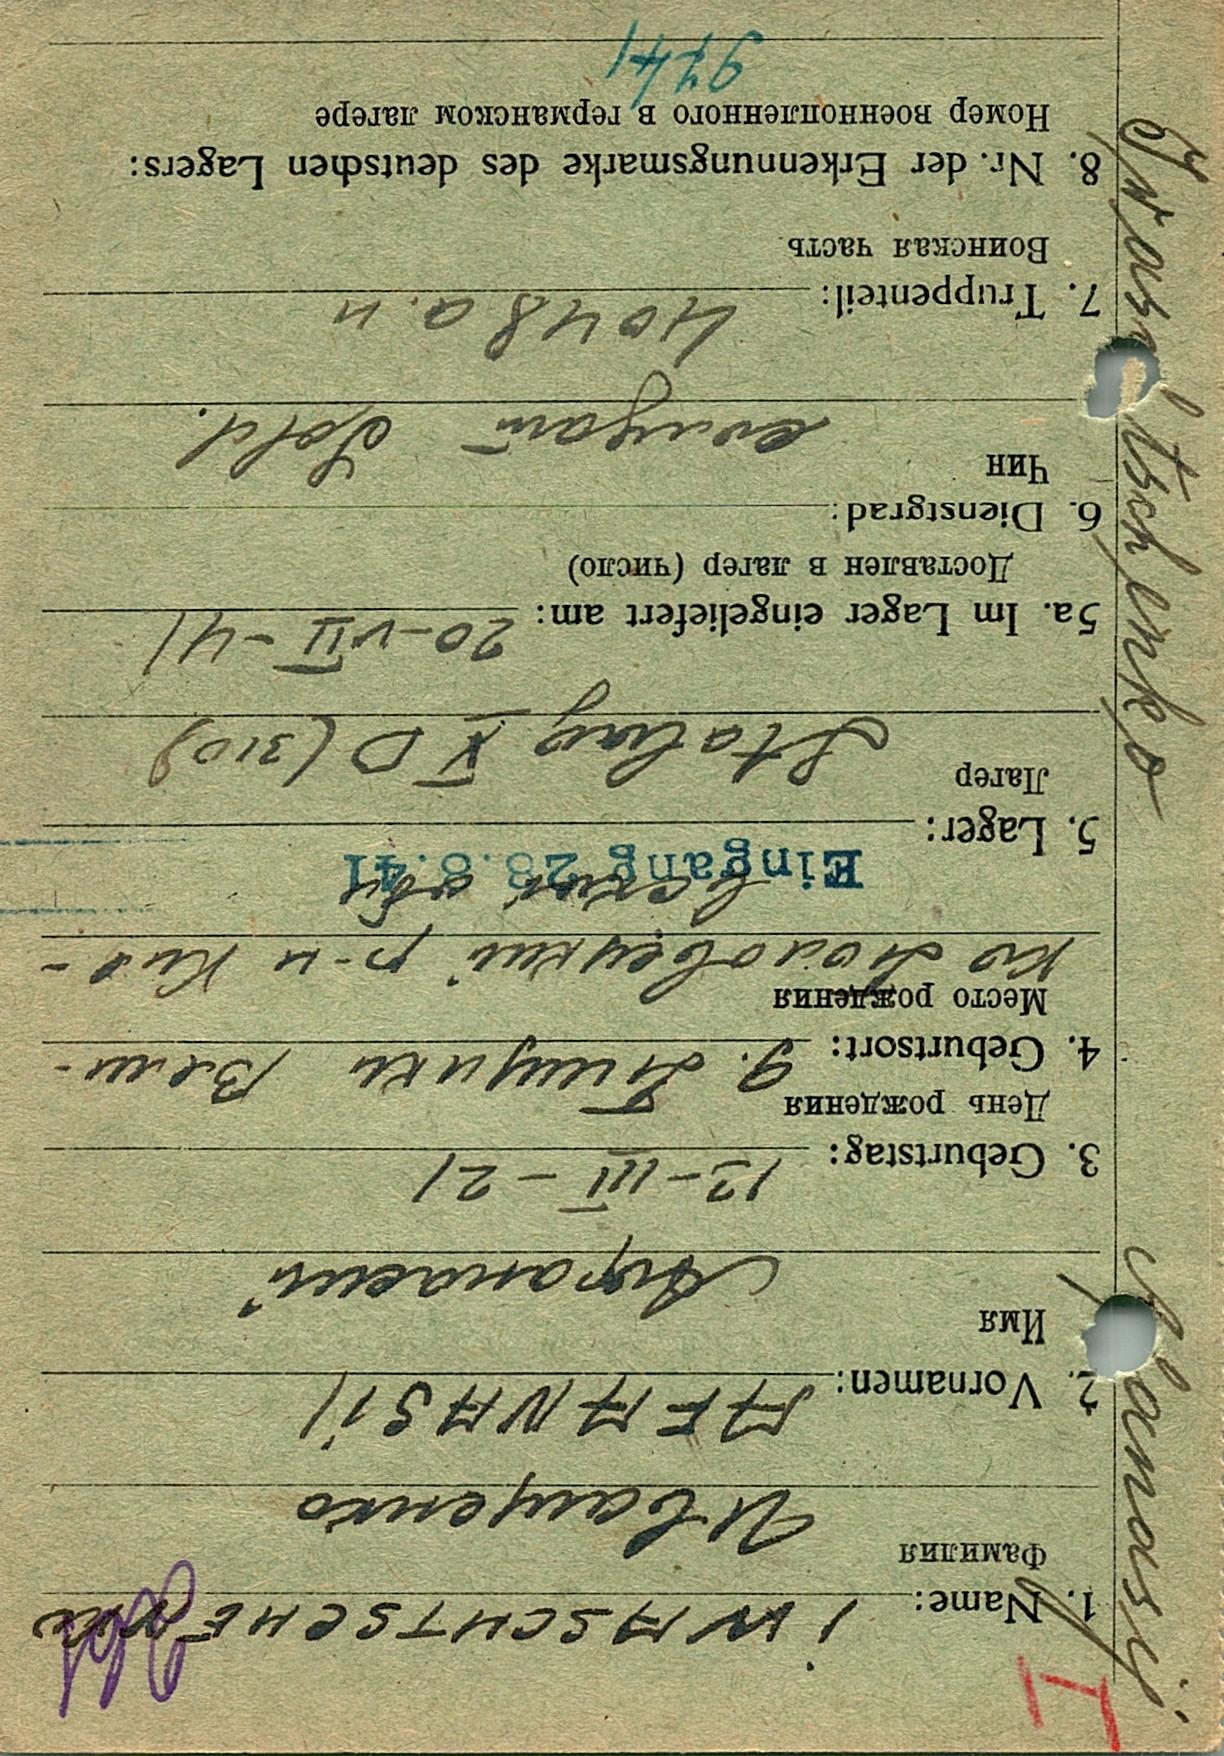 I
1. Name: IWASCHTSCHENKO
Фамилия
Иващенко
2. Vornamen: AFANASIJ
Имя
Афанасий
3. Geburtstag: 12-III-21
День рождения
4. Geburtsort: д.
Место рождения
р-н
Eingang 28.8.41
5. Lager:
Лагер
Stalag X D (310)
5a. Im Lager eingeliefert am: 20-VII-41
Доставлен в лагер (число)
6. Dienstgrad:
Чин
солдат Sold.
7. Truppenteil: 4048
Воинская часть
8. Nr. der Erkennungsmarke des deutschen Lagers:
Номер военнопленного в германском лагере
9741
Iwaschtschenko Afanasij